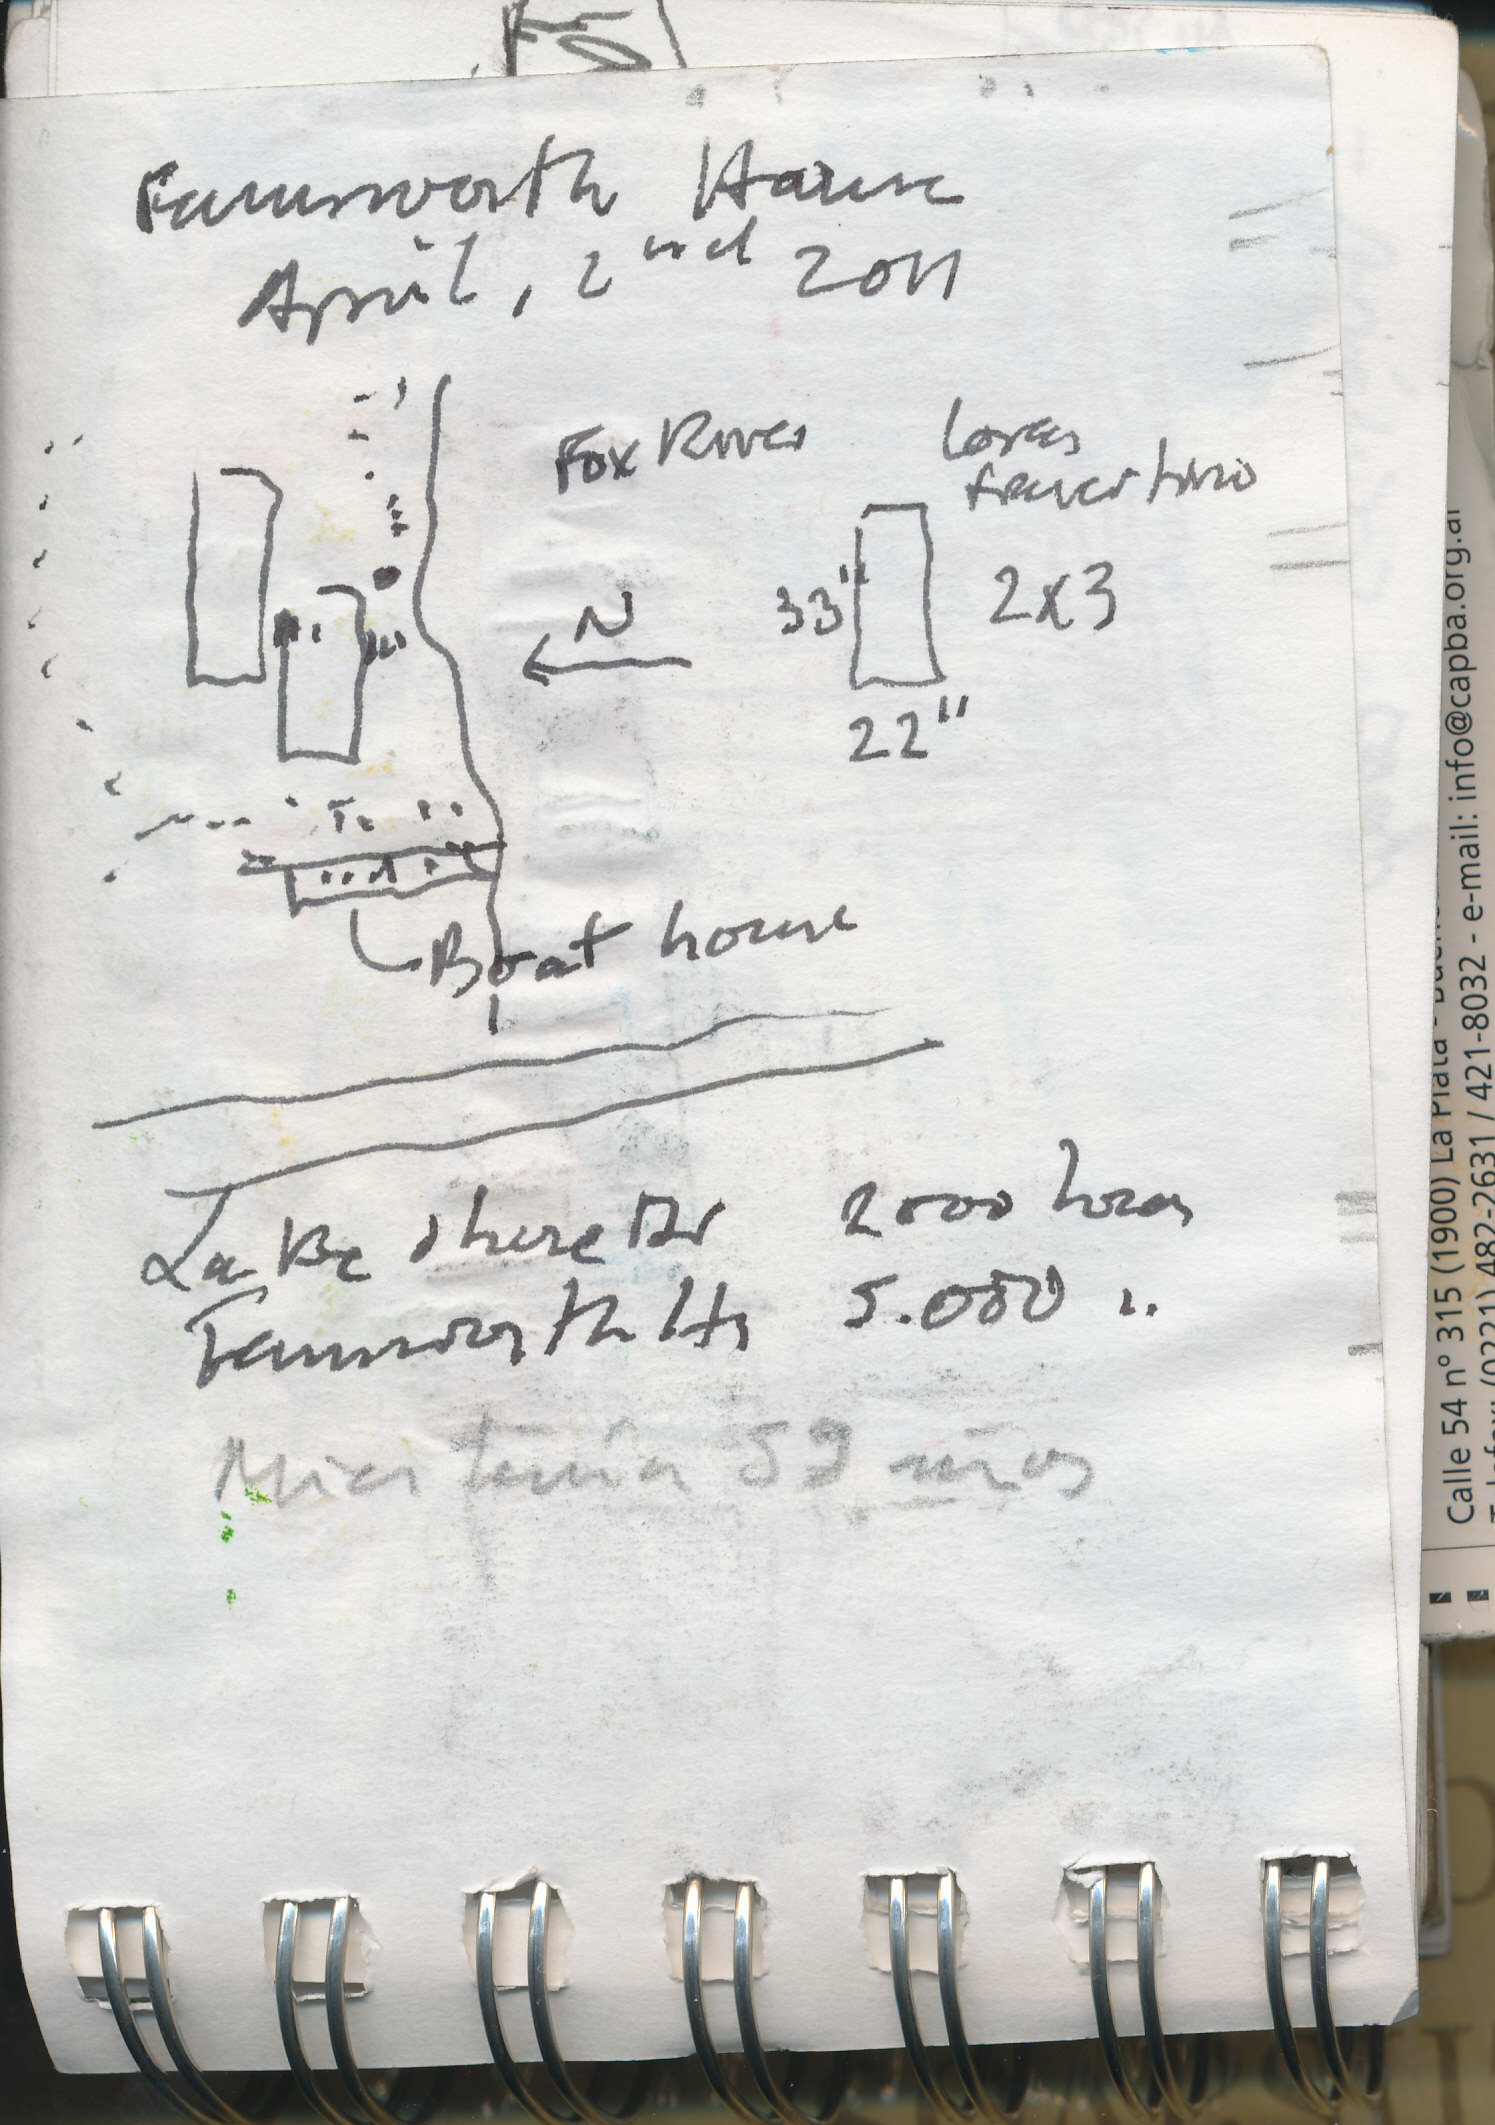 Farnsworth House
April, 2nd 2011
Fox River
Losas
travertino
N
33"
2x3
22"
Boat house
Lake Shore Dr 2000 horas
Farnsworth Hs 5.000 "
Mies tenía 59 años
Calle 54 nº 315 (1900) La Plata - Bueno
(0221) 482-2631 / 421-8032 - e-mail: info@capba.org.ar